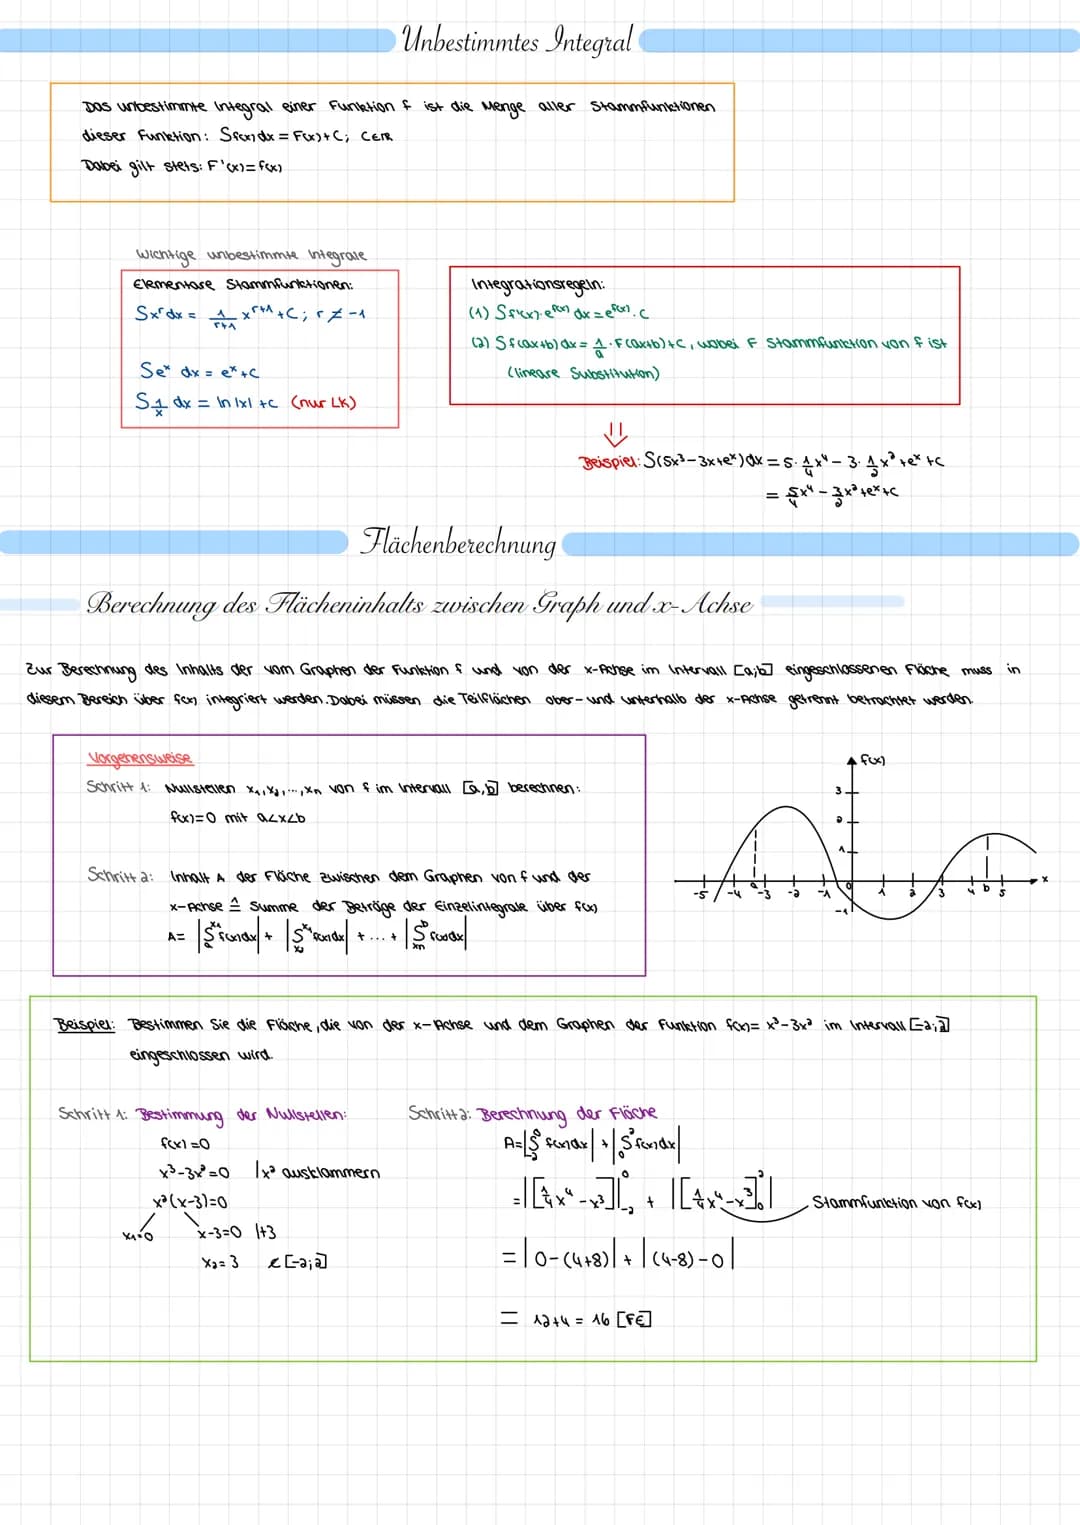 Unbestimmtes Integral
Das unbestimmte Integral einer Funktion f ist die Menge aller Stammfunktionen
dieser Funktion: ∫f(x)dx = F(x)+C; C∈ℝ
Dabei gilt stets: F'(x)=f(x)
Wichtige unbestimmte Integrale
Elementare Stammfunktionen:
∫x^r dx = 1/(r+1) x^(r+1) + C; r ≠ -1
∫e^x dx = e^x + C
∫1/x dx = ln|x| + C (nur LK)
Integrationsregeln:
(1) ∫f'(x)·e^(f(x)) dx = e^(f(x)) · C
(2) ∫f(ax+b)dx = 1/a · F(ax+b)+C, wobei F Stammfunktion von f ist
(lineare Substitution)
⇓
Beispiel: ∫(5x³-3x+e^x)dx = 5·1/4x⁴ - 3·1/2x² + e^x + C
= 5/4x⁴ - 3/2x² + e^x + C
Flächenberechnung
Berechnung des Flächeninhalts zwischen Graph und x-Achse
Zur Berechnung des Inhalts der vom Graphen der Funktion f und von der x-Achse im Intervall [a;b] eingeschlossenen Fläche muss in
diesem Bereich über f(x) integriert werden. Dabei müssen die Teilflächen ober- und unterhalb der x-Achse getrennt betrachtet werden.
Vorgehensweise
Schritt 1: Nullstellen x₁,x₂,...,xn von f im Intervall [a,b] berechnen:
f(x)=0 mit a<x<b
Schritt 2: Inhalt A der Fläche zwischen dem Graphen von f und der
x-Achse ≙ Summe der Beträge der Einzelintegrale über f(x)
A= |∫ₐ^x₁ f(x)dx| + |∫ f(x)dx| + ... + |∫xn^b f(x)dx|
f(x)
3
2
1
-5 -4 a -3 -2 -1 0 1 2 3 4 b 5 x
-1
Beispiel: Bestimmen Sie die Fläche, die von der x-Achse und dem Graphen der Funktion f(x)= x³-3x² im Intervall [-2;2]
eingeschlossen wird.
Schritt 1: Bestimmung der Nullstellen:
f(x)=0
x³-3x²=0 |x² ausklammern
x²(x-3)=0
x₁=0 x-3=0 |+3
x₂=3 ∉[-2;2]
Schritt 2: Berechnung der Fläche
A=|∫₋₂⁰ f(x)dx| + |∫₀² f(x)dx|
=|[1/4x⁴-x³]₋₂⁰| + |[1/4x⁴-x³]₀²| Stammfunktion von f(x)
=|0-(4+8)| + |(4-8)-0|
= 12+4 = 16 [FE]